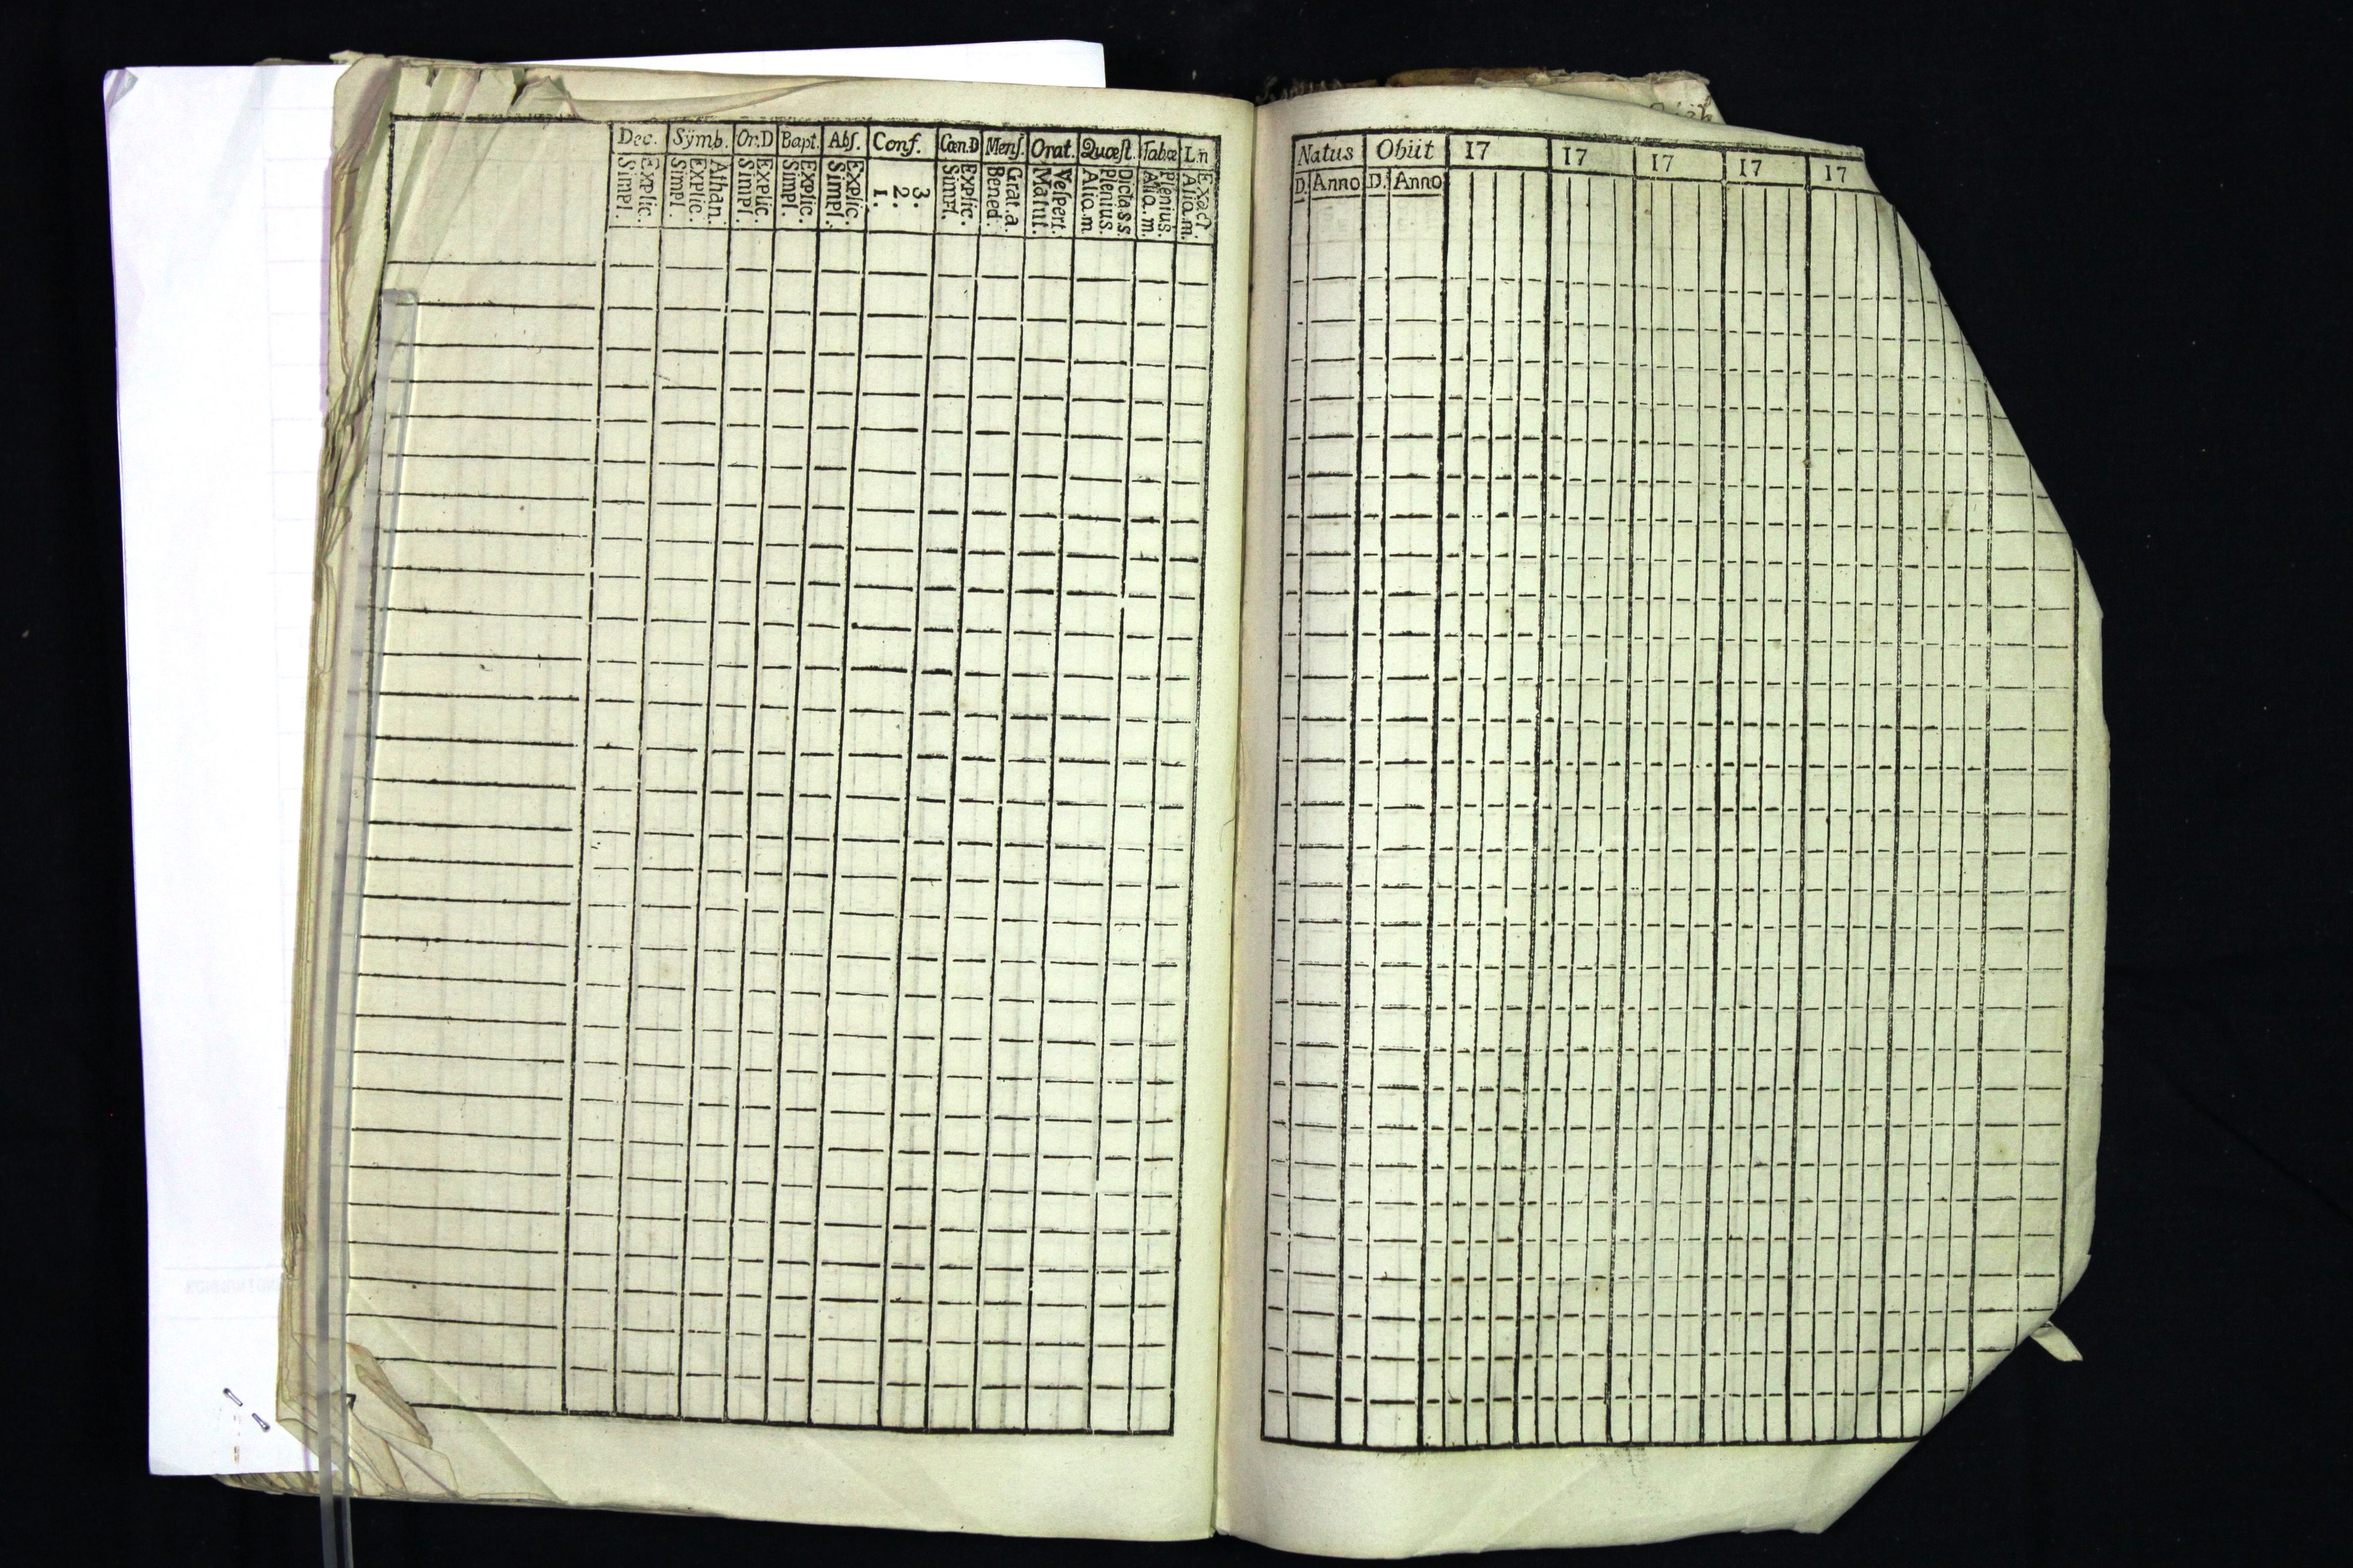 Dec. Sÿmb. Or.D Bapt. Abſ. Conf. Cœn.D Menſ. Orat. Quæſt. Tabæ Lin
Explic. Simpl. Athan. Explic. Simpl. Explic. Simpl. Explic. Simpl. Explic. Simpl. 3. 2. 1. Explic. Simpl. Grat.a. Bened. Veſpert. Matut. Dicta s s. Plenius. Aliq.m Plenius. Aliq.m. Exact. Aliq.m.
Natus Obiit 17 17 17 17 17
D. Anno D. Anno